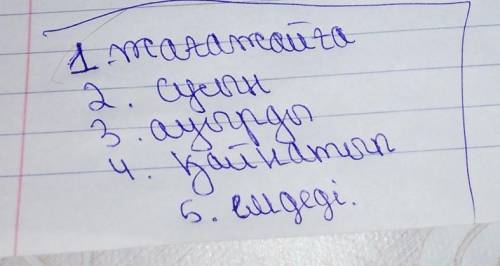 1. жағажайға
2. суын
3. ауырды
4. қайнатып
5. емдеді.